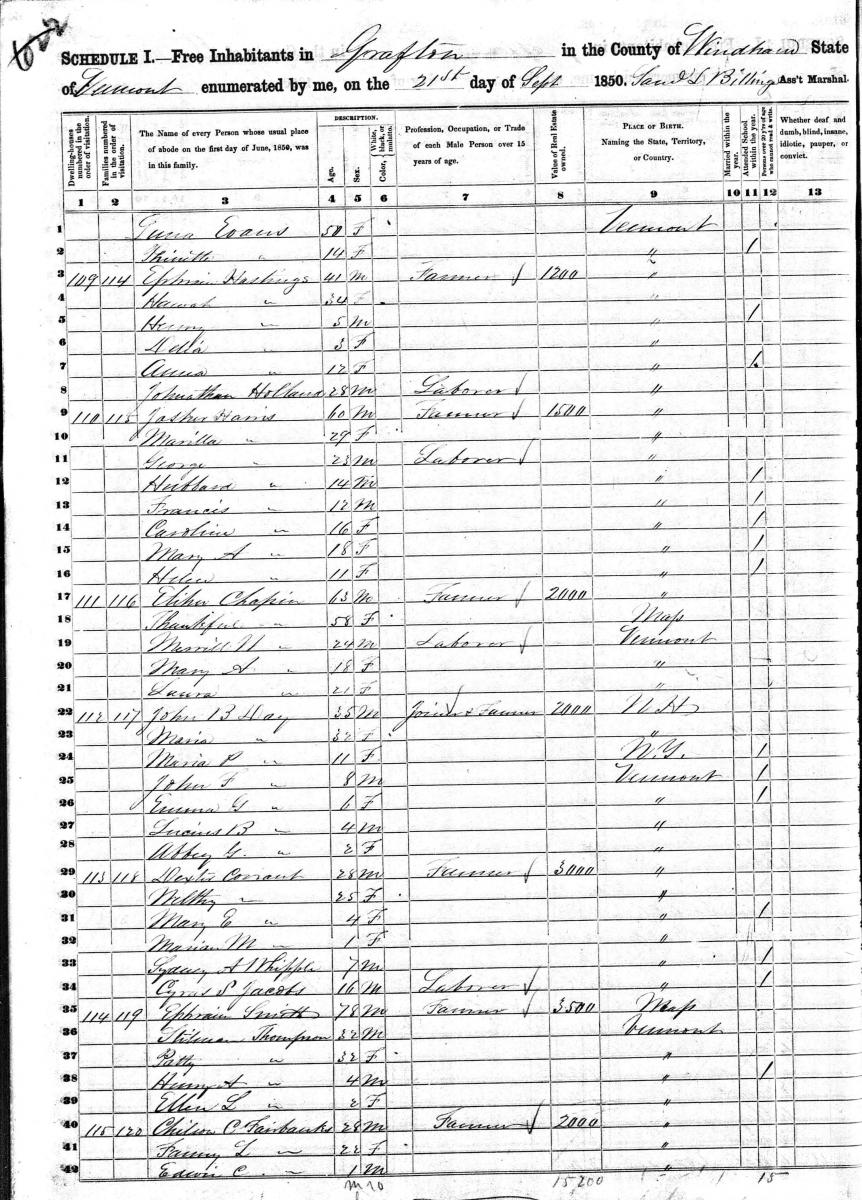 SCHEDULE I.—Free Inhabitants in Grafton in the County of Windham State
of Vermont enumerated by me, on the 21st day of Sept 1850. Saml L Billings Ass't Marshal.
Dwelling-houses numbered in the order of visitation.
Families numbered in the order of visitation.
The Name of every Person whose usual place of abode on the first day of June, 1850, was in this family.
DESCRIPTION.
Age.
Sex.
Color, White, black, or mulatto.
Profession, Occupation, or Trade of each Male Person over 15 years of age.
Value of Real Estate owned.
PLACE OF BIRTH. Naming the State, Territory, or Country.
Married within the year.
Attended School within the year.
Persons over 20 y'rs of age who cannot read & write.
Whether deaf and dumb, blind, insane, idiotic, pauper, or convict.
1 2 3 4 5 6 7 8 9 10 11 12 13
1 Evans 50 F Vermont
2 " 14 F " /
3 109 114 Ephraim Hastings 41 M Farmer 1200 "
4 Hannah " 34 F "
5 Henry " 5 M " /
6 Delia " 3 F "
7 Anna " 12 F " /
8 Johnathan Holland 28 M Laborer "
9 110 115 Harris 60 M Farmer 1500 "
10 Marilla " 29 F "
11 George " 23 M Laborer "
12 Hubbard " 14 M " /
13 Francis " 12 M " /
14 Caroline " 16 F " /
15 Mary A " 18 F " /
16 Helen " 11 F " /
17 111 116 Elihu Chapin 63 M Farmer 2000 "
18 Thankful " 58 F Mass
19 Merrill " 24 M Laborer Vermont
20 Mary A. " 18 F "
21 Laura " 21 F "
22 112 117 John B Day 35 M Joiner & Farmer 2000 N H
23 Maria " 32 F "
24 Maria P " 11 F N.Y. /
25 John F " 8 M Vermont /
26 Emma G " 6 F " /
27 Lucius B " 4 M "
28 Abbey G. " 2 F "
29 113 118 Dexter 28 M Farmer 3000 "
30 " 25 F "
31 Mary E " 4 F " /
32 Marian M " 1 F "
33 Sydney A Whipple 7 M " /
34 Cyrus P Jacobs 16 M Laborer " /
35 114 119 Ephraim Smith 78 M Farmer 3500 Mass
36 Stilman Thompson 32 M Vermont
37 Patty " 32 F "
38 Henry A " 4 M " /
39 Ellen L " 2 F "
40 115 120 Chilson C Fairbanks 28 M Farmer 2000 "
41 Fanny L " 22 F "
42 Edwin C. " 1 M "
15200 15